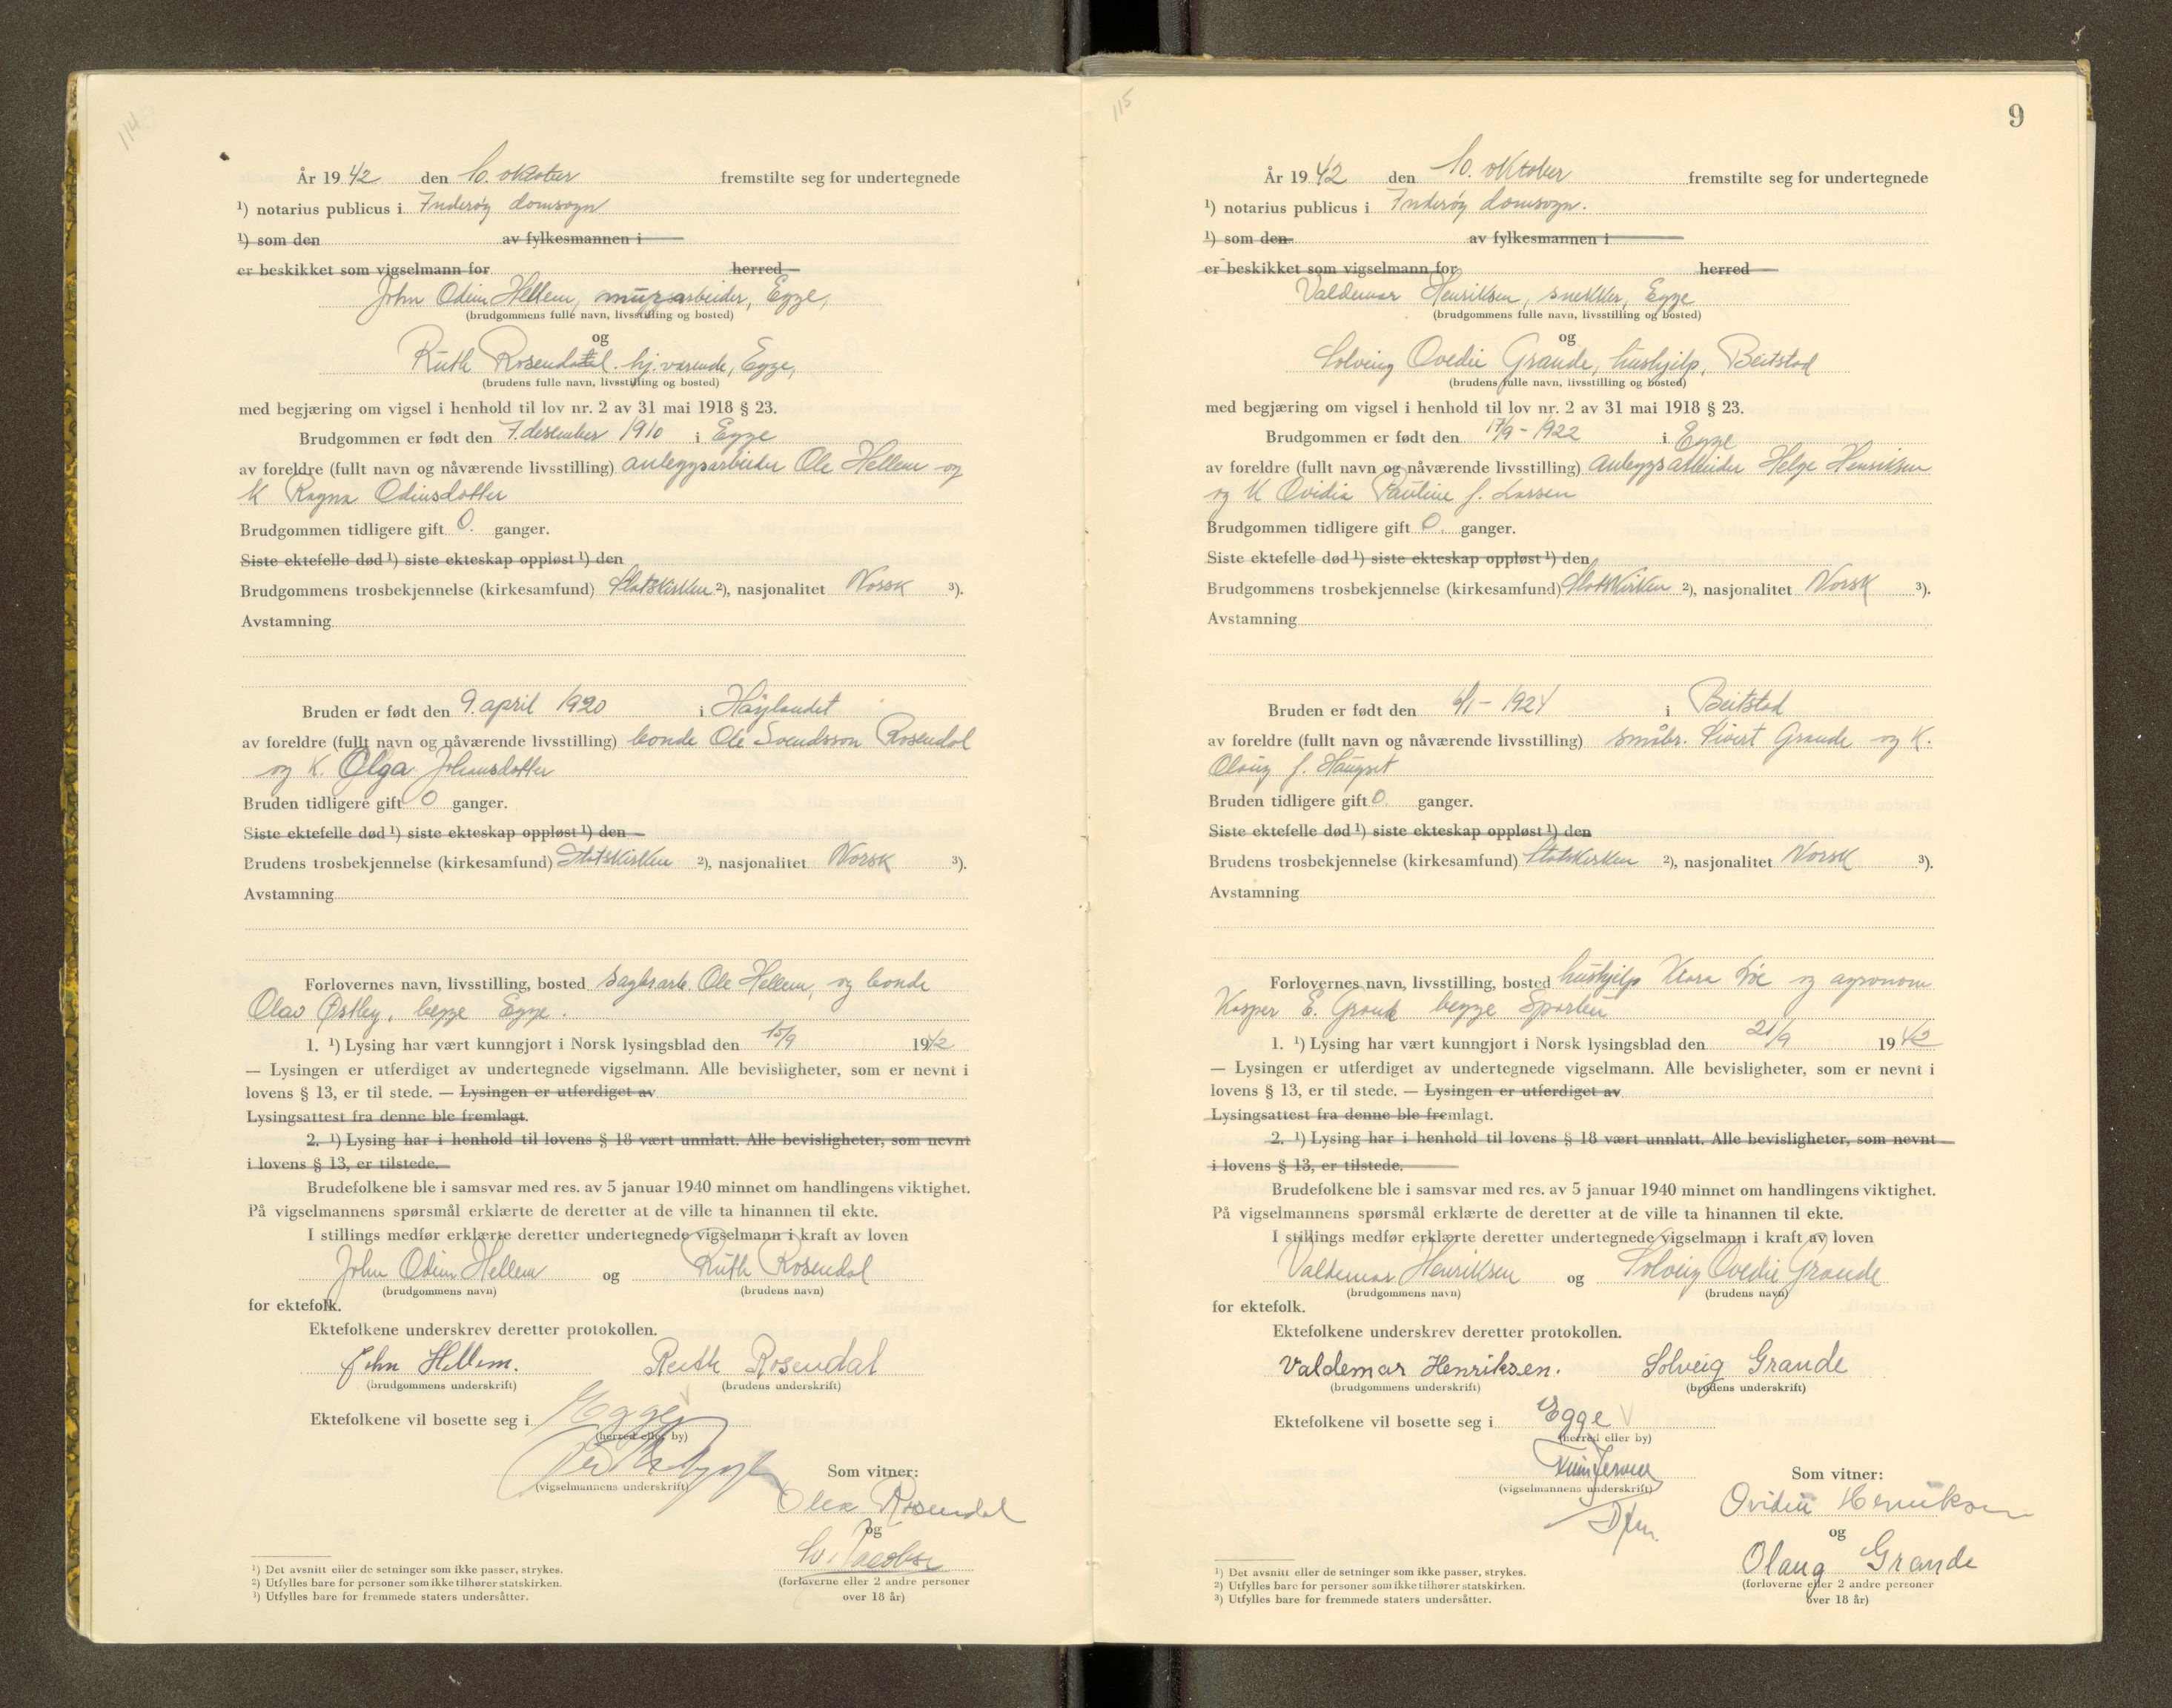 114
År 1942 den 10. oktober fremstilte seg for undertegnede
¹) notarius publicus i Inderøy domsogn
¹) som den av fylkesmannen i
er beskikket som vigselmann for herred
John Odin Hellem, murarbeider, Egge,
(brudgommens fulle navn, livsstilling og bosted)
og
Ruth Rosendal. hj. værende, Egge,
(brudens fulle navn, livsstilling og bosted)
med begjæring om vigsel i henhold til lov nr. 2 av 31 mai 1918 § 23.
Brudgommen er født den 7. desember 1910 i Egge
av foreldre (fullt navn og nåværende livsstilling) anleggsarbeider Ole Hellem og
K Ragna Odinsdotter
Brudgommen tidligere gift 0. ganger.
Siste ektefelle død ¹) siste ekteskap oppløst ¹) den
Brudgommens trosbekjennelse (kirkesamfund) Statskirken ²), nasjonalitet Norsk ³).
Avstamning
Bruden er født den 9. april 1920 i Høylandet
av foreldre (fullt navn og nåværende livsstilling) bonde Ole Svendsson Rosendal
og K. Olga Johansdotter
Bruden tidligere gift 0 ganger.
Siste ektefelle død ¹) siste ekteskap oppløst ¹) den
Brudens trosbekjennelse (kirkesamfund) Statskirken ²), nasjonalitet Norsk ³).
Avstamning
Forlovernes navn, livsstilling, bosted sagbr.arb. Ole Hellem, og bonde
Olav Østby, begge Egge.
1. ¹) Lysing har vært kunngjort i Norsk lysingsblad den 15/9 1942
— Lysingen er utferdiget av undertegnede vigselmann. Alle bevisligheter, som er nevnt i
lovens § 13, er til stede. — Lysingen er utferdiget av
Lysingsattest fra denne ble fremlagt.
2. ¹) Lysing har i henhold til lovens § 18 vært unnlatt. Alle bevisligheter, som nevnt
i lovens § 13, er tilstede.
Brudefolkene ble i samsvar med res. av 5 januar 1940 minnet om handlingens viktighet.
På vigselmannens spørsmål erklærte de deretter at de ville ta hinannen til ekte.
I stillings medfør erklærte deretter undertegnede vigselmann i kraft av loven
John Odin Hellem og Ruth Rosendal
(brudgommens navn) (brudens navn)
for ektefolk.
Ektefolkene underskrev deretter protokollen.
John Hellem. Ruth Rosendal
(brudgommens underskrift) (brudens underskrift)
Ektefolkene vil bosette seg i Egge
(herred eller by)
Som vitner:
(vigselmannens underskrift)
Rosendal
og
Jacobsen
(forloverne eller 2 andre personer
over 18 år)
¹) Det avsnitt eller de setninger som ikke passer, strykes.
²) Utfylles bare for personer som ikke tilhører statskirken.
³) Utfylles bare for fremmede staters undersåtter.
115
9
År 1942 den 10. oktober fremstilte seg for undertegnede
¹) notarius publicus i Inderøy domsogn.
¹) som den av fylkesmannen i
er beskikket som vigselmann for herred
Valdemar Henriksen, snekker, Egge
(brudgommens fulle navn, livsstilling og bosted)
og
Solveig Ovedie Grande, hushjelp, Beitstad
(brudens fulle navn, livsstilling og bosted)
med begjæring om vigsel i henhold til lov nr. 2 av 31 mai 1918 § 23.
Brudgommen er født den 17/9 - 1922 i Egge
av foreldre (fullt navn og nåværende livsstilling) anleggsarbeider Helge Henriksen
og K Ovidia Pauline f. Larsen
Brudgommen tidligere gift 0. ganger.
Siste ektefelle død ¹) siste ekteskap oppløst ¹) den
Brudgommens trosbekjennelse (kirkesamfund) Statskirken ²), nasjonalitet Norsk ³).
Avstamning
Bruden er født den 6/1 - 1924 i Beitstad
av foreldre (fullt navn og nåværende livsstilling) småbr. Sivert Grande og K.
Olaug f. Haugset
Bruden tidligere gift 0. ganger.
Siste ektefelle død ¹) siste ekteskap oppløst ¹) den
Brudens trosbekjennelse (kirkesamfund) Statskirken ²), nasjonalitet Norsk ³).
Avstamning
Forlovernes navn, livsstilling, bosted hushjelp Klara og agronom
Kasper E. Grande begge Sparbu
1. ¹) Lysing har vært kunngjort i Norsk lysingsblad den 21/9 1942
— Lysingen er utferdiget av undertegnede vigselmann. Alle bevisligheter, som er nevnt i
lovens § 13, er til stede. — Lysingen er utferdiget av
Lysingsattest fra denne ble fremlagt.
2. ¹) Lysing har i henhold til lovens § 18 vært unnlatt. Alle bevisligheter, som nevnt
i lovens § 13, er tilstede.
Brudefolkene ble i samsvar med res. av 5 januar 1940 minnet om handlingens viktighet.
På vigselmannens spørsmål erklærte de deretter at de ville ta hinannen til ekte.
I stillings medfør erklærte deretter undertegnede vigselmann i kraft av loven
Valdemar Henriksen og Solveig Ovedie Grande
(brudgommens navn) (brudens navn)
for ektefolk.
Ektefolkene underskrev deretter protokollen.
Valdemar Henriksen. Solveig Grande
(brudgommens underskrift) (brudens underskrift)
Ektefolkene vil bosette seg i Egge
(herred eller by)
Som vitner:
(vigselmannens underskrift)
Ovidie Henriksen
og
Olaug Grande
(forloverne eller 2 andre personer
over 18 år)
¹) Det avsnitt eller de setninger som ikke passer, strykes.
²) Utfylles bare for personer som ikke tilhører statskirken.
³) Utfylles bare for fremmede staters undersåtter.